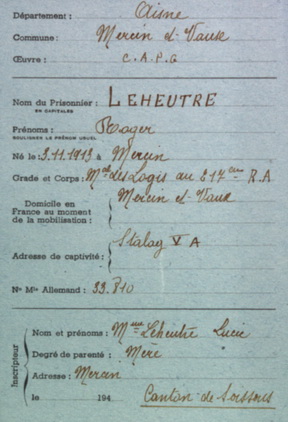 Département : Aisne
Commune : Mercin et Vaux
Œuvre : C.A.P.G
Nom du Prisonnier : LEHEUTRE
EN CAPITALES
Prénoms : Roger
SOULIGNER LE PRÉNOM USUEL
Né le : 3.11.1913 à Mercin
Grade et Corps : Mal des Logis au 217ème R.A
Domicile en Mercin et Vaux
France au moment
de la mobilisation :
Stalag V A
Adresse de captivité :
No Mle Allemand : 33.810
Nom et prénoms : Mme Leheutre Lucie
Degré de parenté : Mère
Inscripteur
Adresse : Mercin
le 194 Canton de Soissons